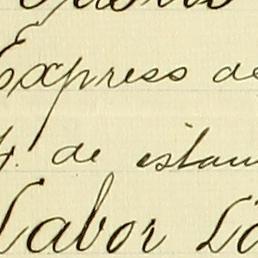 Express de
de estam
Labor La